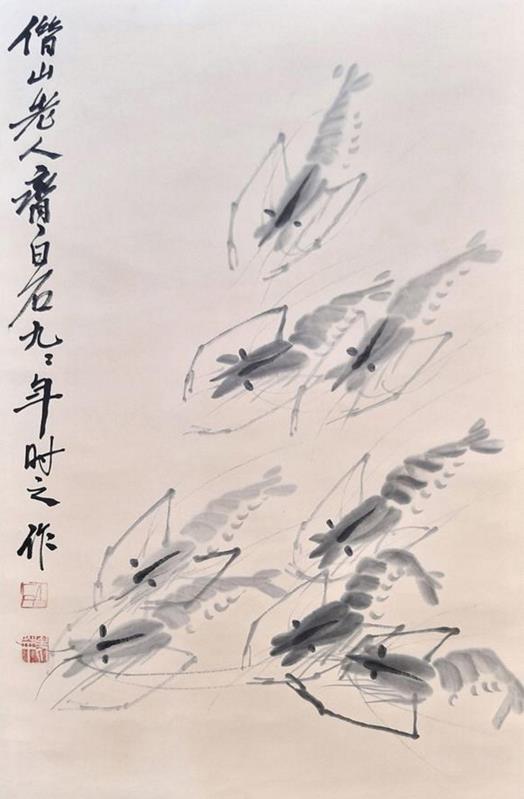 借山老人齊白石九二年时之作